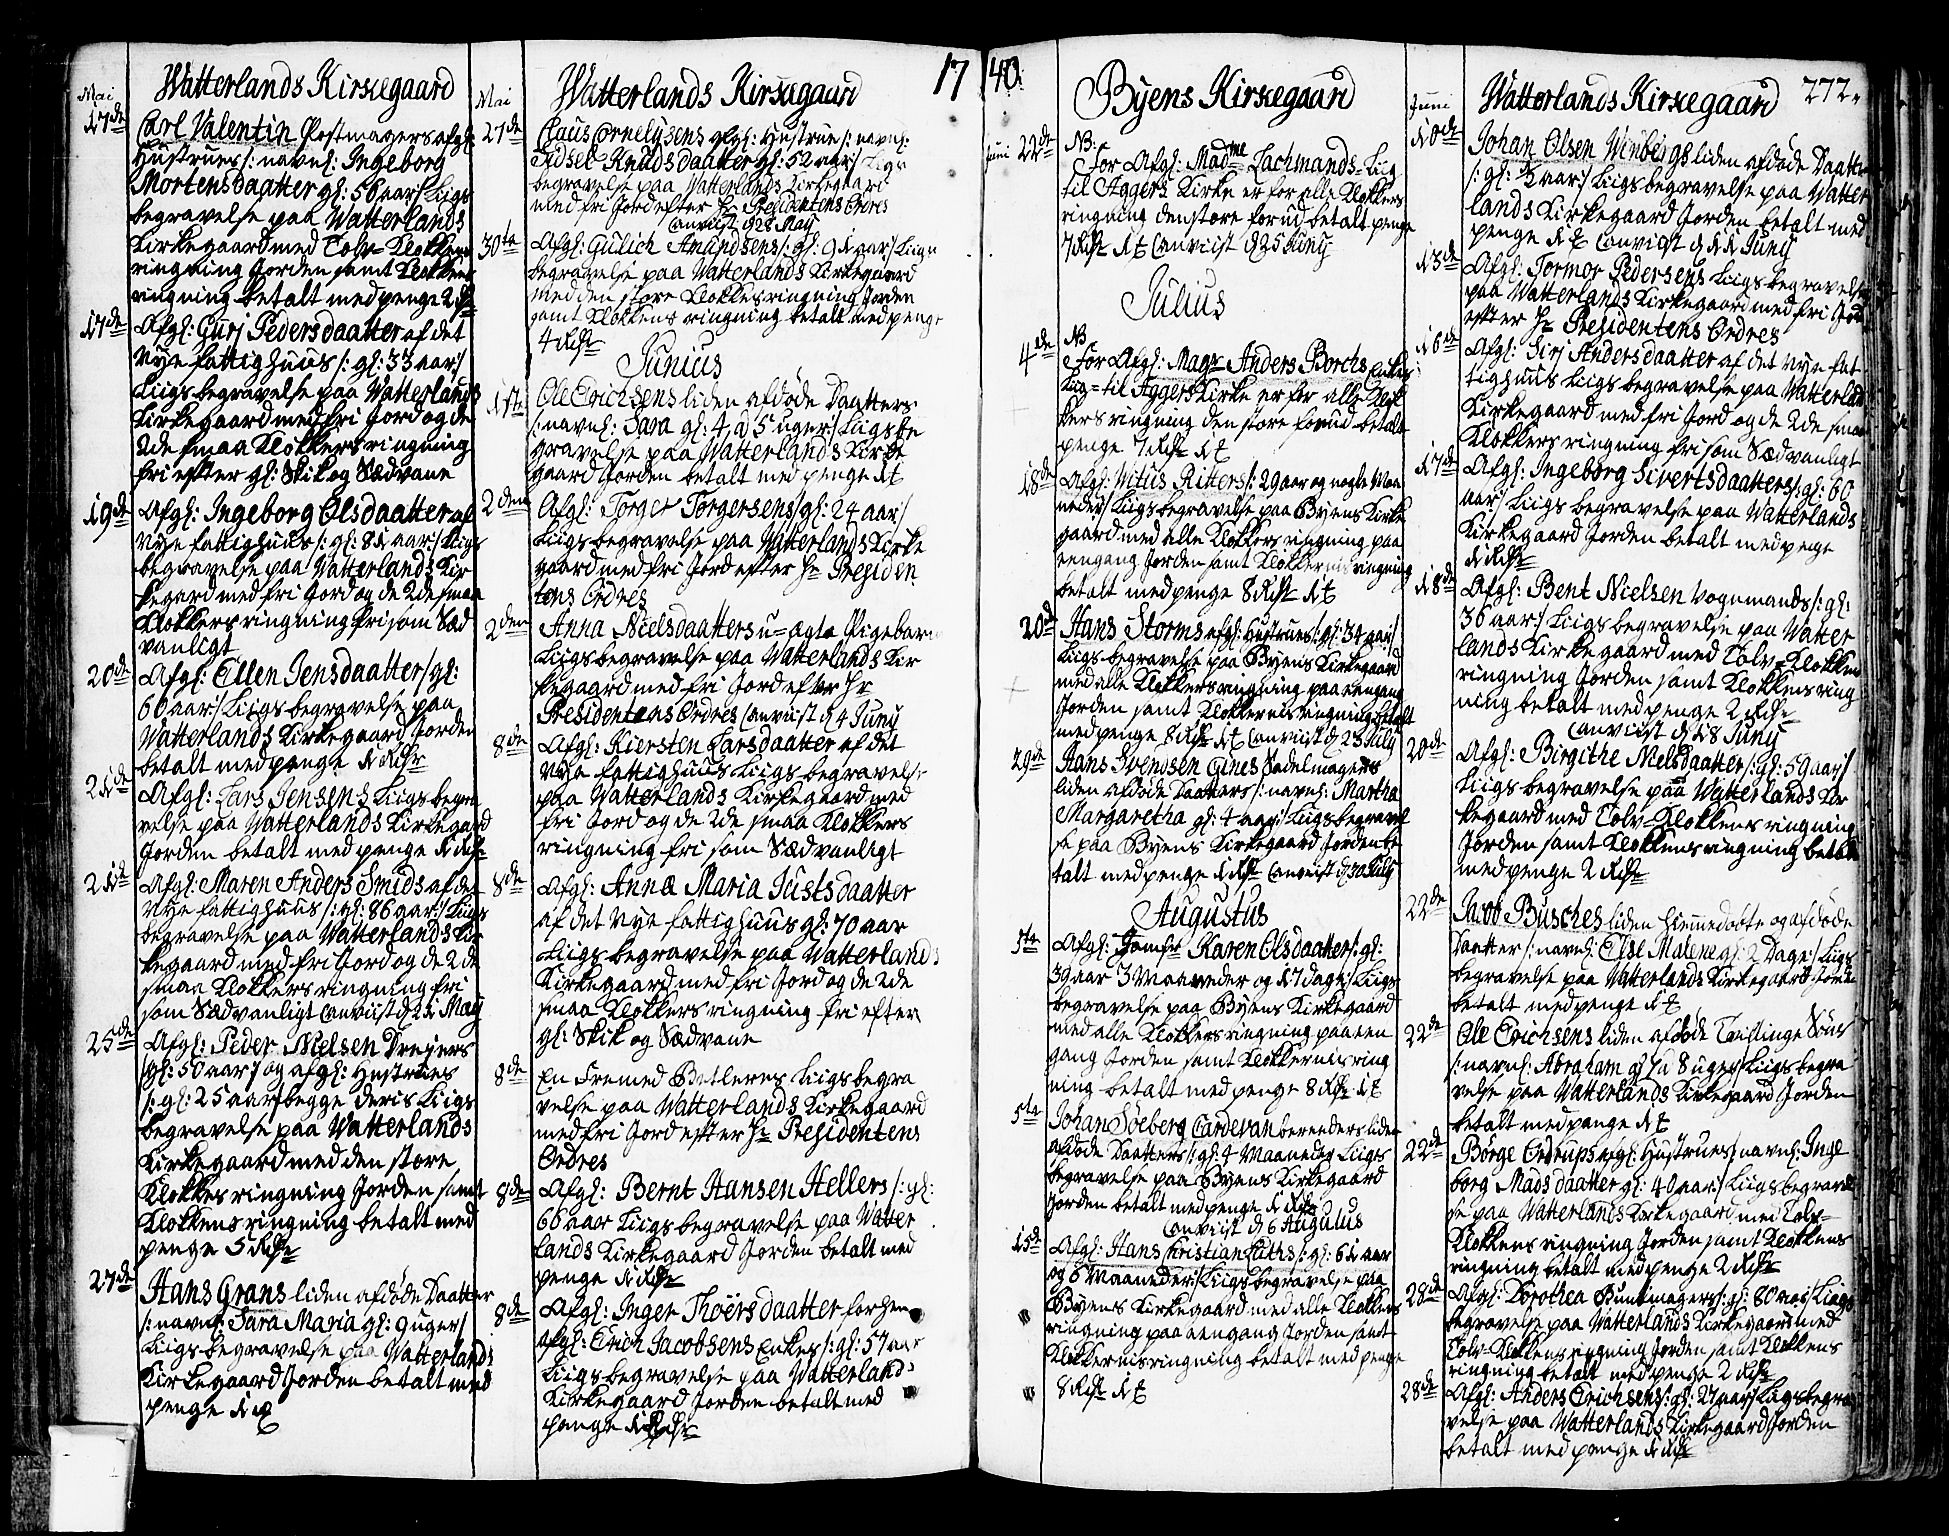 Watterlands Kirkegaard
Mai
17de
Carl Valentin Postmagers afgl:
Hustrues /: navnl: Ingeborg
Mortensdaatter gl: 56 aar/ Liigs
begravelse paa Watterlands
Kirkegaard med Tolv-Klokkens
ringning Jorden samt Klokkens
ringning betalt med penge 2 Rdr
17de
Afgl: Gurj Pedersdaatter af det
Nye fattighuus /: gl: 33 aar:/
Liigs begravelse paa Watterlands
Kirkegaard med fri Jord og de
2de smaa Klokkers ringning
fri efter gl: Skik og Sædvane
19de
Afgl: Ingeborg Olsdaatter af
Nye fattighuus /: gl: 81 aar:/ Liigs
begravelse paa Watterlands Kir
kegard med fri Jord og de 2de smaa
Klokkers ringning fri som Sæd
vanligt
20de
Afgl: Ellen Jensdaatter /gl:
60 aar/ Liigs begravelse paa
Watterlands Kirkegaard Jorden
betalt med penge 1 Rdr
21de
Afgl: Lars Jensens Liigs begra
velse paa Watterlands Kirkegaard
Jorden betalt med penge 1 Rdr
21de
Afgl: Maren Anders Smids af det
Nye fattighuus /: gl: 86 aar:/ Liigs
begravelse paa Watterlands Kir
kegaard med fri Jord og de 2de
smaa Klokkers ringning fri
som Sædvanligt Anviist d 21 May
25de
Afgl: Peder Nielsen Drejers
/gl: 50 aar/ og afgl: Hustrues
/: gl: 25 aar/ begge deris Liigs
begravelse paa Watterlands
Kirkegaard med den store
Klokkes ringning Jorden samt
Klokkens ringning betalt med
penge 5 Rdr
27de
Hans Grans liden afdøde Daatter
/: navnl: Sara Maria gl: 9 uger/
Liigs begravelse paa Watterlands
Kirkegaard Jorden betalt med
penge 1 ort
Watterlands Kirkegaard 17
Mai
27de
Claus Cornelysens afgl: Hustrue /: navnl:
Sidsel Knudsdaatter gl: 52 aar/ Liigs
begravelse paa Watterlands Kirkegaard
med fri Jord efter Hr Presidentens Ordres
Anviist d 28 May
30te
Afgl: Gulich Amundsens /: gl: 91 aar/ Liigs
begravelse paa Watterlands Kirkegaard
med den store Klokkes ringning Jorden
samt Klokkens ringning betalt med penge
4 Rdr
Junius
1ste
Ole Erichsens liden afdøde Daatters
/: navnl: Sara gl: 4 a 5 uger:/ Liigs be
gravelse paa Watterlands Kirke
gaard Jorden betalt med penge 1 ort
2den
Afgl: Torger Torgersens /gl: 24 aar:/
Liigs begravelse paa Watterlands Kirke
gaard med fri Jord efter Hr Presiden
tens Ordres
2den
Anna Nielsdaatters u=ægte Pigebarn
Liigs begravelse paa Watterlands Kir
kegaard med fri Jord efter Hr
Presidentens Ordres Anviist d 4 Juny
8de
Afgl: Kiersten Larsdaatter af det
Nye fattighuus Liigs begravelse
paa Watterlands Kirkegaard med
fri Jord og de 2de smaa Klokkers
ringning fri som Sædvanligt
8de
Afgl: Anna Maria Justsdaatter
af det Nye fattighuus gl: 70 aar
Liigs begravelse paa Watterlands
Kirkegaard med fri Jord og de 2de
smaa Klokkers ringning fri efter
gl: Skik og Sædvane
8de
En fremed Betleres Liigs begra
velse paa Watterlands Kirkegaard
med fri Jord efter Hr Presidentens
Ordres
8de
Afgl: Bernt Hansen Hellers /: gl:
66 aar Liigs begravelse paa Watter
lands Kirkegaard Jorden betalt med
penge 1 Rdr
8de
Afgl: Inger Thoërsdaatter forhen
afgl: Erich Jacobsens Enkes /: gl: 57 aar
Liigs begravelse paa Watterlands
Kirkegaard Jorden betalt med
penge 1 Rdr
40. Byens Kirkegaard
Juni
22de
NB.
For Afgl: Madme Lachmands Liig
til Aggers Kirke er for alle Klokkers
ringning den store forud betalt penge
7 Rdr 1 ort Anviist d 25 Juny
Julius
4de
NB
For Afgl: Magr Anders Borchs
Liig til Aggers Kirke er for alle Klok
kers ringning den store forud betalt
penge 7 Rdr 1 ort
18de
Afgl: Vitus Ritters /: 29 aar og nogle Maa
neder/ Liigs begravelse paa Byens Kirke
gaard med alle Klokkers ringning paa
eengang Jorden samt Klokkernis ringning
betalt med penge 8 Rdr 1 ort
20de
Hans Storms afgl: Hustrues /: gl: 34 aar:/
Liigs begravelse paa Byens Kirkegaard
med alle Klokkers ringning paa eengang
Jorden samt Klokkernis ringning betalt
med penge 8 Rdr 1 ort Anviist d 23 July
29de
Hans Svendsen Gines Sadelmagers
liden afdøde Daatters /: navnl: Martha
Margaretha gl: 4 aar:/ Liigs begravel
se paa Byens Kirkegaard Jorden be
talt med penge 1 Rdr Anviist d 30 July
Augustus
5te
Afgl: Jomfr Karen Olsdaatter /: gl:
39 aar 3 Maaneder og 17 dage:/ Liigs
begravelse paa Byens Kirkegaard
med alle Klokkers ringning paa een
gang Jorden samt Klokkernis ring
ning betalt med penge 8 Rdr 1 ort
5te
Johan Söeberg Cardevan bereeders liden
afdøde Daatters /: gl: 4 Maaneder Liigs
begravelse paa Byens Kirkegaard
Jorden betalt med penge 1 Rdr
Anviist d 6 Augusus
15de
Afgl: Hans Christian Luths /: gl: 61 aar
og 6 Maaneder:/ Liigs begravelse paa
Byens Kirkegaard med alle Klokkers
ringning paa eengang Jorden samt
Klokkernis ringning betalt med penge
8 Rdr 1 ort
Watterlands Kirkegaard 272.
Juni
10de
Johan Olsen Winbergs liden afdøde Daatter
/: gl: 1/2 aar:/ Liigs begravelse paa Watter
lands Kirkegaard Jorden betalt med
penge 1 ort Anviist d 11 Juny
13de
Afgl: Tormor Pedersens Liigs begravelse
paa Watterlands Kirkegaard med fri Jord
efter Hr Presidentens Ordres
16de
Afgl: Sirj Andersdaatter af det Nye fat
tighuus Liigs begravelse paa Watterlands
Kirkegaard med fri Jord og de 2de smaa
Klokkers ringning fri som Sædvanligt
17de
Afgl: Ingeborg Sivertsdaatters /: gl: 60
aar:/ Liigs begravelse paa Watterlands
Kirkegaard Jorden betalt med penge
1 Rdr
18de
Afgl: Bent Nielsen Vognmands /: gl:
36 aar:/ Liigs begravelse paa Watter
lands Kirkegaard med Tolv-Klokkens
ringning Jorden samt Klokkens ring
ning betalt med penge 2 Rdr
Anviist d 18 Juny
20de
Afgl: Birgithe Nielsdaatter /: gl: 59 aar/
Liigs begravelse paa Watterlands Kir
kegaard med Tolv-Klokkens ringning
Jorden samt Klokkens ringning betalt
med penge 2 Rdr
22de
Jacob Busches liden hiemmedøbte og afdøde
Daatter /: navnl: Else Malene gl: 2 Dage:/ Liigs
begravelse paa Watterlands Kirkegaard Jorden
betalt med penge 1 ort
22de
Ole Erichsens liden afdøde Tvillinge Söns
/: navnl: Abraham gl 7 a 8 uger/ Liigs begra
velse paa Watterlands Kirkegaard Jorden
betalt med penge 1 ort
22de
Børge Ostrups afgl: Hustrues /: navnl: Inge
borg Madsdaatter gl: 40 aar:/ Liigs begravel
se paa Watterlands Kirkegaard med Tolv-
Klokkens ringning Jorden samt Klokkens
ringning betalt med penge 2 Rdr
28de
Afgl: Dorothea Buntmagers /: gl: 80 aar/ Liigs
begravelse paa Watterlands Kirkegaard med
Tolv-Klokkens ringning Jorden samt Klokkens
ringning betalt med penge 2 Rdr
28de
Afgl: Anders Erichsens /: gl: 27 aar/ Liigs begra
velse paa Watterlands Kirkegaard Jorden
betalt med penge 1 Rdr